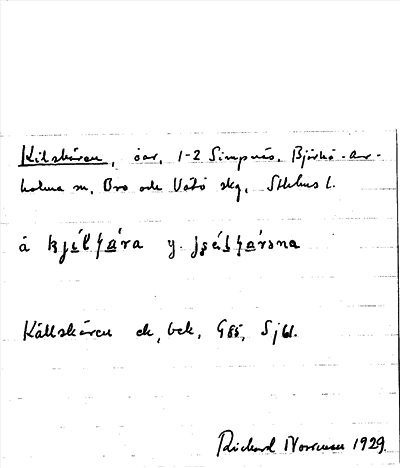 Kilskären, öar, 1-2 Simpnäs, Björkö-Ar-
holma sn, Bro och Vätö skg, Sthlms l.
å kjɛ́lʃɑ́ra y.
Källskären ek, bek, G85, Sjkl.
Richard Norrman 1929.